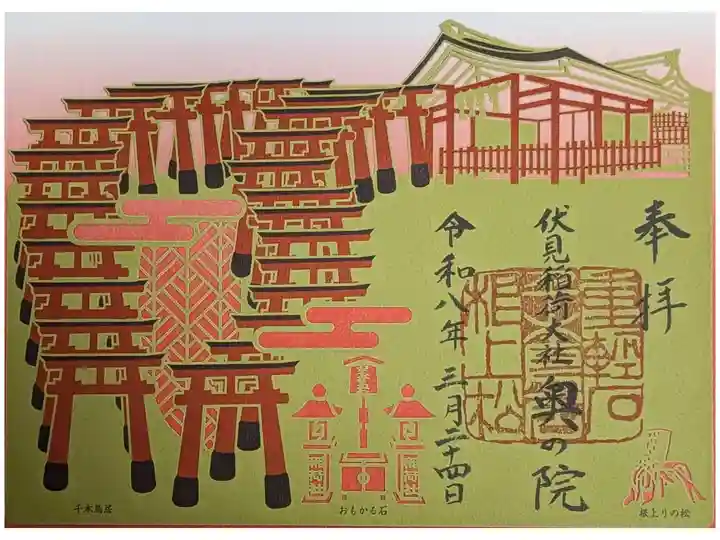 奉拝
伏見稲荷大社奥の院
令和八年三月二十四日
重軽石
根上松
千本鳥居
おもかる石
根上りの松